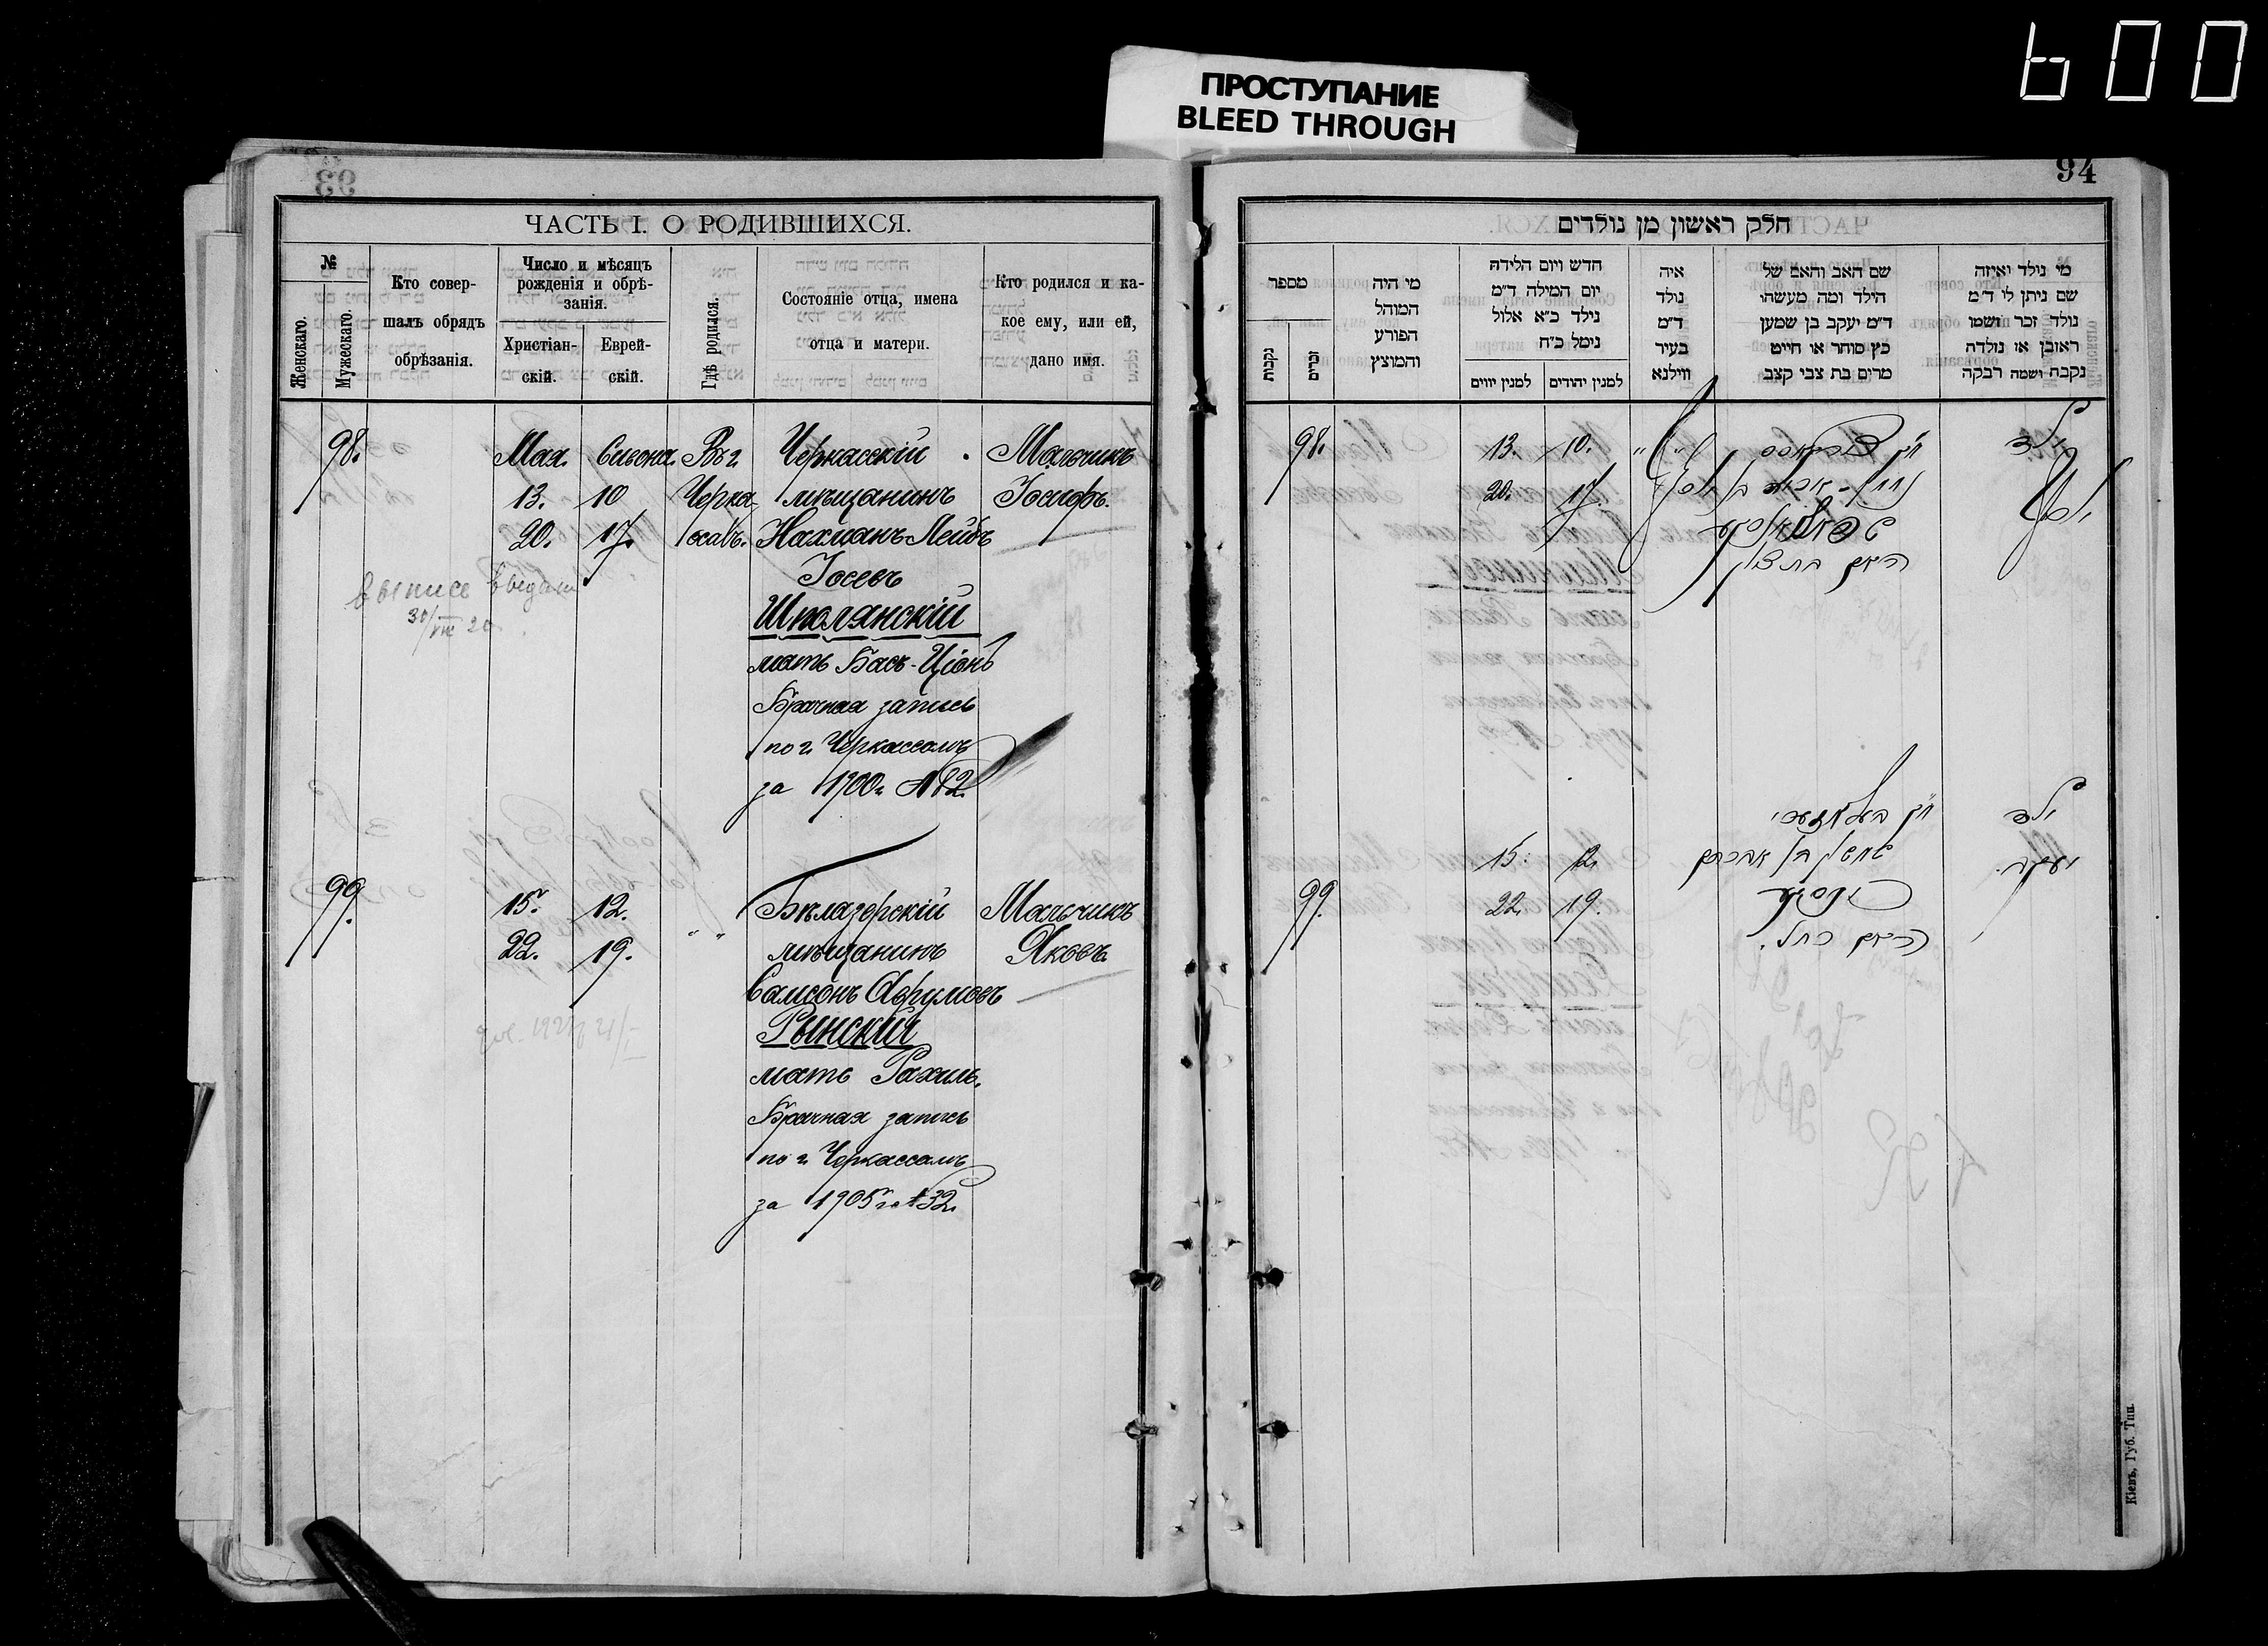 600
ПРОСТУПАНИЕ
BLEED THROUGH
93
ЧАСТЬ I. О РОДИВШИХСЯ.
№
Женскаго.
Мужескаго.
Кто совер-
шалъ обрядъ
обрѣзанія.
Число и мѣсяцъ
рожденія и обрѣ-
занія.
Христіан-
скій.
Еврей-
скій.
Гдѣ родился.
Состояніе отца, имена
отца и матери.
Кто родился и ка-
кое ему, или ей,
дано имя.
98. Мая Сивона Въ г. Черкасскій Мальчикъ
13. 10 Черка- мѣщанинъ Іосифъ.
20. 17. ссахъ. Нахманъ-Лейбъ
Іосевъ
Шполянскій
мать Бася-Ціонъ
Брачная запись
по г. Черкассамъ
за 1900 г. №12.
30/VIII 20
99. 15. 12. " " Бѣлазерскій Мальчикъ
22. 19. мѣщанинъ Яковъ.
Самсонъ Аврумовъ
Рынскій
мать Рахиль.
Брачная запись
по г. Черкассамъ
за 1905 г. №32.
94
חלק ראשון מן נולדים
מספר
נקבות
זכרים
מי היה
המוהל
הפורע
והמוצץ
חדש ויום הלידה
יום המילה ד״מ
נילד כ״א אלול
נימל כ״ח
למנין יווים
למנין יהודים
איה
נולד
ד״מ
בעיר
ווילנא
שם האב והאם של
הילד ומה מעשהו
ד״מ יעקב בן שמען
כץ סוחר או חייט
מרים בת צבי קצב
מי נולד ואיזה
שם ניתן לו ד״מ
נולד זכר ושמו
ראובן או נולדה
נקבה ושמה רבקה
98. 13. 10. ילד
20. 17. יוסף
ילד
15. 12. שמשון בן אברהם יעקב.
99. 22. 19.
רחל.
Кіевъ, Губ. Тип.